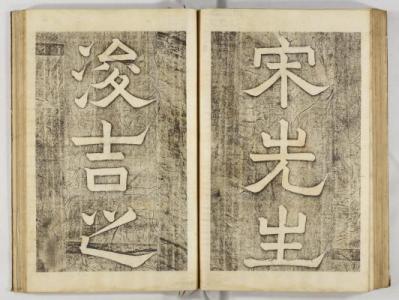 宋先生
浚吉之